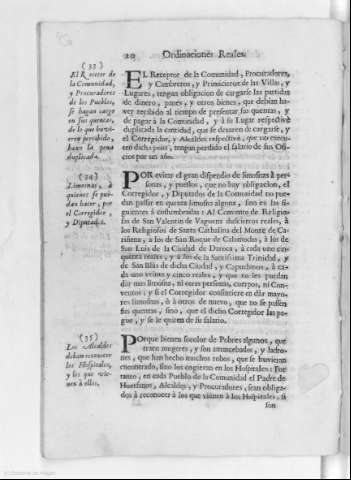 20 Ordinaciones Reales.
(33)
El Receptor de
la Comunidad,
y Procuradores
de los Pueblos,
se hagan cargo
en sus quentas,
de lo que huvie-
ren percibido,
baxo la pena
duplicada.
EL Receptor de la Comunidad, Procuradores,
y Cambreros, y Primicieros de las Villas, y
Lugares, tengan obligacion de cargarse las partidas
de dinero, panes, y otros bienes, que debian ha-
ver recibido al tiempo de presentar sus quentas, y
de pagar à la Comunidad, y à su Lugar respectivè
duplicada la cantidad, que se dexaren de cargarse, y
el Corregidor, y Alcaldes respectivè, que no execu-
ten dicha pena, tengan perdido el salario de sus Ofi-
cios por un año.
(34)
Limosnas, à
quienes se pue-
dan hacer, por
el Corregidor,
y Diputados.
POR evitar el gran dispendio de limosnas à per-
sonas, y puestos, que no hay obligacion, el
Corregidor, y Diputados de la Comunidad no pue-
dan passar en quenta limosna alguna, sino en las si-
guientes à costumbradas: Al Convento de Religio-
sas de San Valentin de Vaguena duscientos reales, à
los Religiosos de Santa Cathalina del Monte de Ca-
riñena, à los de San Roque de Calamocha, à los de
San Luis de la Ciudad de Daroca, à cada uno cin-
quenta reales, y à los de la Santissima Trinidad, y
de San Blàs de dicha Ciudad, y Capuchinos, à ca-
da uno veinte y cinco reales, y que no les puedan
dàr mas limosna, ni otras personas, cuerpos, ni Con-
ventos; y si el Corregidor consintiere en dàr mayo-
res limosnas, ò à otros de nuevo, que no se passen
sus quentas, sino, que el dicho Corregidor las pa-
gue, y se le quiten de su salario.
(35)
Los Alcaldes
deban reconocer
los Hospitales,
y los que vie-
nen à ellos.
PORque bienen so color de Pobres algunos, que
traen mugeres, y son amancebados, y ladro-
nes, que han hecho muchos robos, que se huvieran
encontrado, sino los cogieran en los Hospitales: Por
tanto, en cada Pueblo de la Comunidad el Padre de
Huerfanos, Alcaldes, y Procuradores, sean obliga-
dos à reconocer à los que vinieren à los Hospitales, si
son